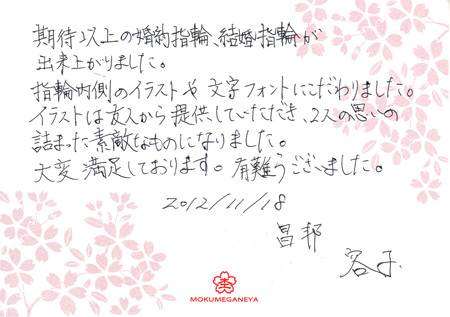 期待以上の婚約指輪、結婚指輪が
出来上がりました。
指輪内側のイラストや文字フォントにこだわりました。
イラストは友人から提供していただき、2人の思いの
詰まった素敵なものになりました。
大変満足しております。有難うございました。
2012/11/18
昌邦
容子
MOKUMEGANEYA